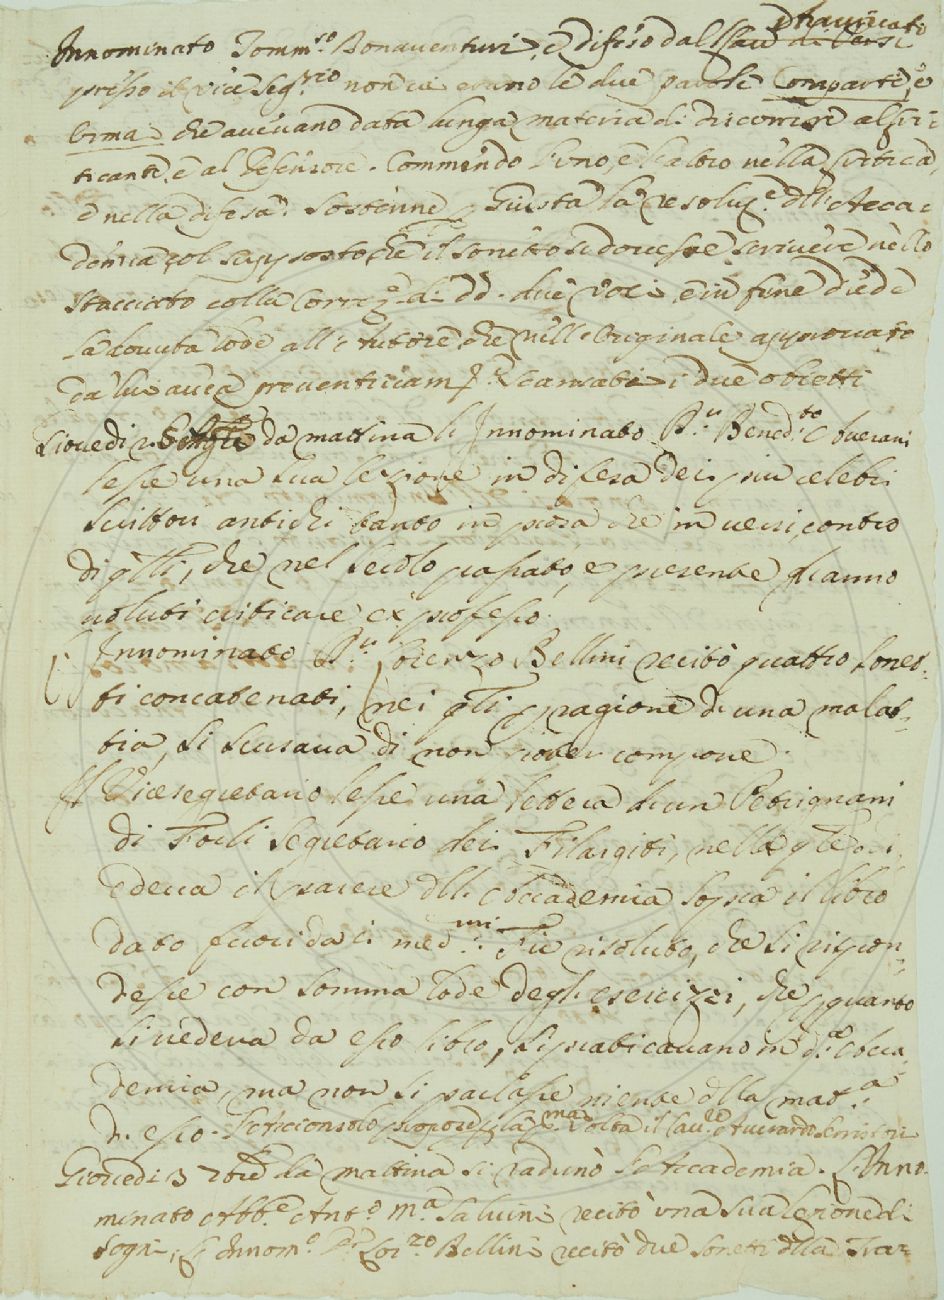 Innominato Tomm.so Bonaventuri, e difeso dal Cav.
presso il Vice Seg.rio non vi erano le due parole Comparte, e
lima che avevano data lunga materia di discorrere al Cri-
ticante, e al Defensore. Commendò l'uno, e l'altro nella critica,
e nella difesa. Sostenne giusta la resoluz.e dll'Acca-
demia sol supposto, che il sonetto si dovesse scrivere nello
Stacciato colla Correz.e di dd. due voci, e in fine diede
la dovuta lode all'Autore, che nell'Originale approvato
da lui avea preventivam.te scansati i due obietti
Giovedi da mattina l'Innominato Benedetto Averani
lesse una sua lezione in difesa dei piu celebri
Scrittori antichi tanto in prosa che in versi, contro
di q.lli, che nel secolo passato, e presente gl'anno
voluti criticare ex professo.
L'Innominato Lorenzo Bellini recitò quattro sonet-
ti concatenati, nei q.li p ragione di una malat-
tia, si scusava di non poter comporre.
Il Vicesegretario lesse una lettera di un Petrignani
di Forlì Segretario dei Filargiti, nella q.le
edeva il parere dll'Accademia sopra il libro
dato fuori da i med.mi Fu risoluto, che si rispon-
desse con somma lode degli esercizzi, che p quanto
si vedeva da esso libro, si praticavano in d.a Acca-
demia, ma non si parlasse niente dlla mat.a
di esso. propose p la p.ma volta il Cav.re
Giovedi 3 7bre da mattina si radunò l'Accademia. L'Inno-
minato Abb.e Ant.o M.a Salvini recitò una sua lezione di
sogni, L'Innom.o Lor.zo Bellini recitò due sonetti dlla Tra-